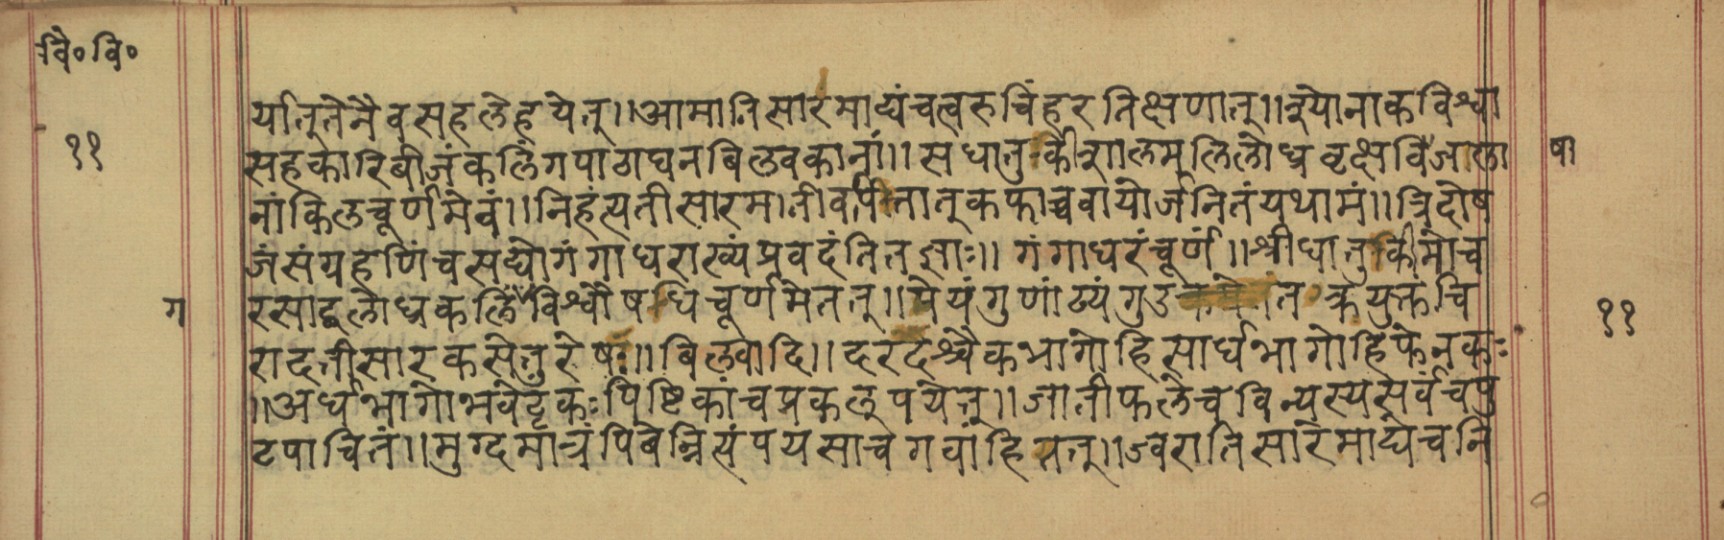 वै॰ वि॰
११
र्यात्तुतेनैवसहलेहयेत्॥आमातिसारमाद्यंचत्वरुचिंहरतिक्षणात्॥श्योनाकविश्वा
सहकारिबीजंकलिंगपाठाघनबिल्वकानां॥सधातुकीशाल्मलिलोध्रवृक्षविजाला
षा
नांकिलचूर्णमेवं॥निहंत्यतीसारमतीवपित्तात्कफाच्चवायोर्जनितंयथामं॥त्रिदोष
जंसंग्रहणिंचसद्योगंगाधराख्यंप्रवदंतितज्ञाः॥गंगाधरंचूर्णं॥श्रीधातुकीमोच
ग
रसाद्बलोध्रकलिंविश्वौषधिचूर्णमेतत्॥पेयंगुणाढ्यंगुड तक्रयुक्तंचि
रादतीसारकसेतुरेषः॥बिल्वादि॥दरदश्चैकभागोहिसार्धभागोहिफेनकः
११
॥अर्धभागोभवेट्टंकःपिष्टिकांचप्रकल्पयेत्॥जातीफलेचविन्यस्यसर्वंचपु
टपाचितं॥मुग्दमात्रंपिबेन्नित्यंपयसाचगवांहितत्॥ज्वरातिसारमाद्यंचनि